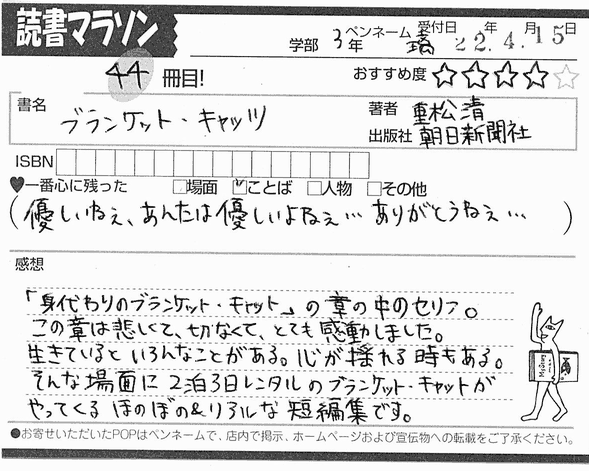 読書マラソン
学部 3年 ペンネーム 受付日 22年4月15日
44冊目!
おすすめ度 ☆☆☆☆☆
書名 ブランケット・キャッツ
著者 重松清
出版社 朝日新聞社
ISBN
♥一番心に残った □場面 ☑ことば □人物 □その他
(優しいねぇ、あんたは優しいよねぇ… ありがとうねぇ…)
感想
「身代わりのブランケット・キャット」の章の中のセリフ。
この章は悲しくて、切なくて、とても感動しました。
生きているといろんなことがある。心が揺れる時もある。
そんな場面に2泊3日レンタルのブランケット・キャットが
やってくるほのぼの&リアルな短編集です。
●お寄せいただいたPOPはペンネームで、店内で掲示、ホームページおよび宣伝物への転載をご了承ください。